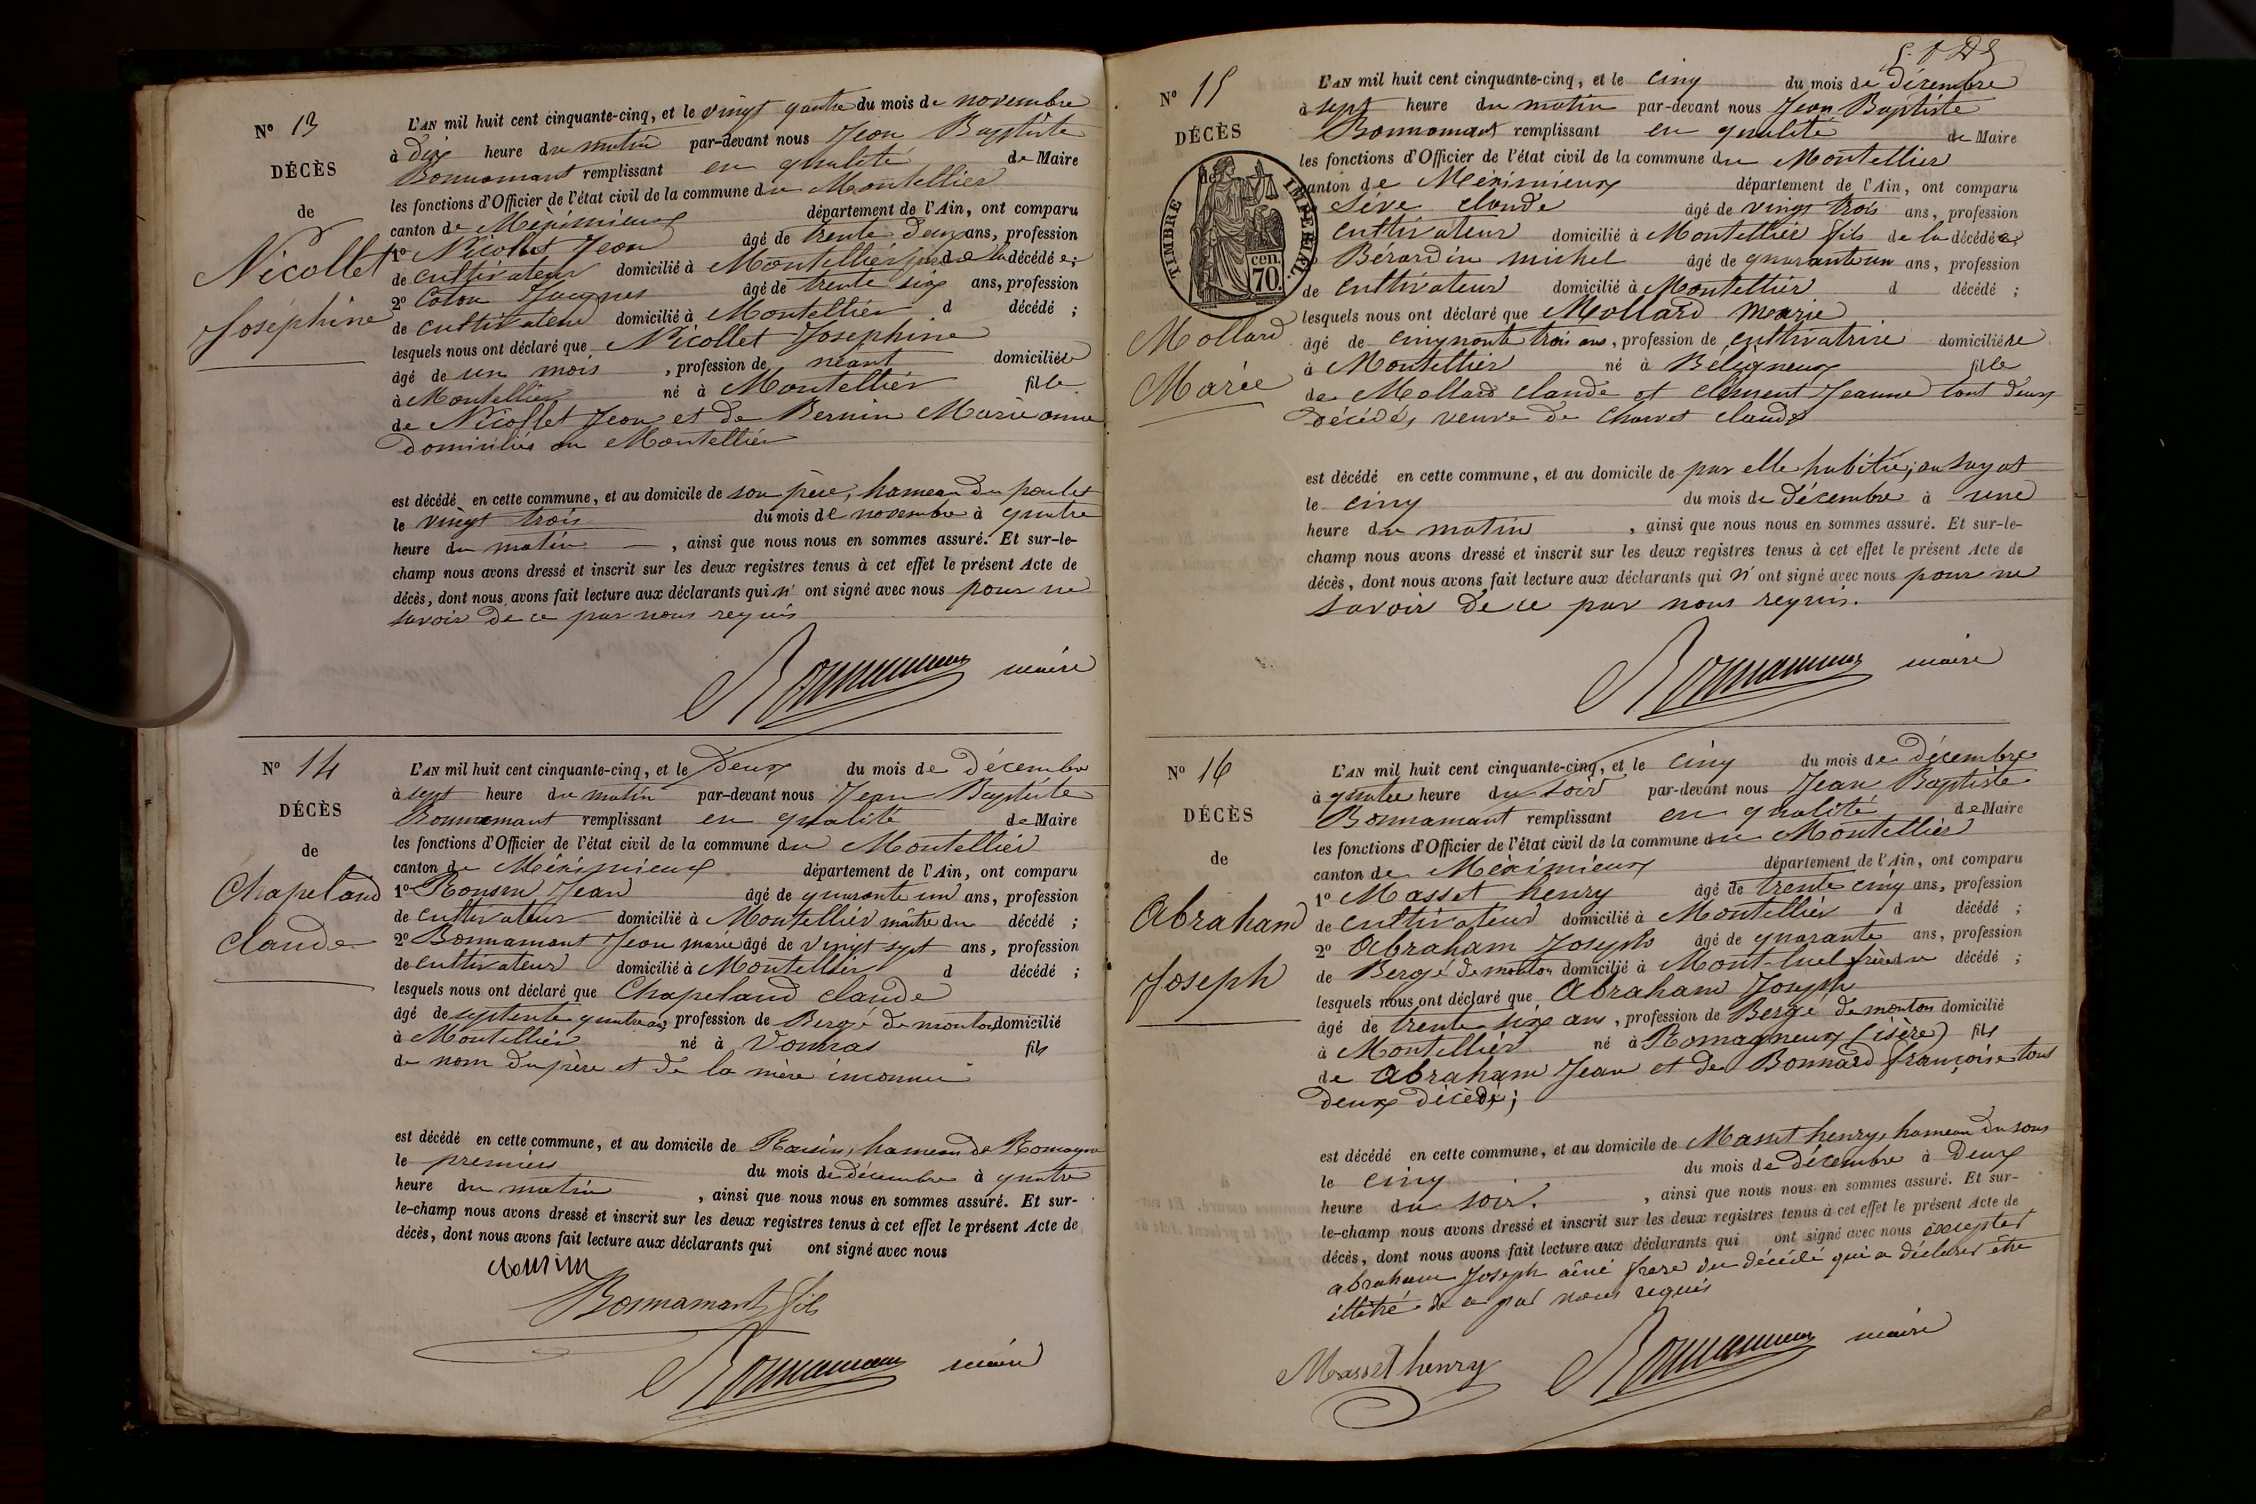 Nº 13
DÉCÈS
de
Nicollet
Joséphine
L'AN mil huit cent cinquante-cinq, et le vingt quatre du mois de novembre
à dix heure du matin par-devant nous Jean Baptiste
Bonnamant remplissant en qualité de Maire
les fonctions d'Officier de l'état civil de la commune du Montellier
canton de Méximieux département de l'Ain, ont comparu
1º Nicollet Jean âgé de trente deux ans, profession
de cultivateur domicilié à Montellier père de la décédée;
2º Coton Jacques âgé de trente six ans, profession
de cultivateur domicilié à Montellier d décédé ;
lesquels nous ont déclaré que Nicollet Josephine
âgé de un mois , profession de néant domiciliée
à Montellier né à Montellier fille
de Nicollet Jean et de Bernin Marie anne
domiciliés au Montellier
est décédé en cette commune, et au domicile de son père, hameau du poulet
le vingt trois du mois de novembre à quatre
heure du matin , ainsi que nous nous en sommes assuré. Et sur-le-
champ nous avons dressé et inscrit sur les deux registres tenus à cet effet le présent Acte de
décès, dont nous avons fait lecture aux déclarants qui n' ont signé avec nous pour ne
savoir de ce par nous requis
Bonnamant maire
Nº 14
DÉCÈS
de
Chapeland
claude
L'AN mil huit cent cinquante-cinq, et le deux du mois de décembre
à sept heure du matin par-devant nous Jean Baptiste
Bonnamant remplissant en qualité de Maire
les fonctions d'Officier de l'état civil de la commune du Montellier
canton de Méximieux département de l'Ain, ont comparu
1º Jean âgé de quarante un ans, profession
de cultivateur domicilié à Montellier maître du décédé ;
2º Bonnamant Jean marie âgé de vingt sept ans, profession
de cultivateur domicilié à Montellier d décédé ;
lesquels nous ont déclaré que Chapeland claude
âgé de septente quatre ans profession de Bergé de mouton domicilié
à Montellier né à Vonnas fils
de nom du père et de la mère inconnu
est décédé en cette commune, et au domicile de hameau de Romagne
le premier du mois de décembre à quatre
heure du matin , ainsi que nous nous en sommes assuré. Et sur-
le-champ nous avons dressé et inscrit sur les deux registres tenus à cet effet le présent Acte de
décès, dont nous avons fait lecture aux déclarants qui ont signé avec nous
Bonnamant fils
Bonnamant maire
Nº 15
DÉCÈS
de
TIMBRE IMPÉRIAL
70 cen.
Mollard
Marie
L'AN mil huit cent cinquante-cinq, et le cinq du mois de décembre
à sept heure du matin par-devant nous Jean Baptiste
Bonnamant remplissant en qualité de Maire
les fonctions d'Officier de l'état civil de la commune du Montellier
canton de Méximieux département de l'Ain, ont comparu
Sève claude âgé de vingt trois ans, profession
cultivateur domicilié à Montellier fils de la décédée
Bérardin michel âgé de quarante un ans, profession
de cultivateur domicilié à Montellier d décédé ;
lesquels nous ont déclaré que Mollard Marie
âgé de cinquante trois ans, profession de cultivatrice domiciliée
à Montellier né à Béligneux fille
de Mollard claude et clément Jeanne tout deux
décédé, veuve de claude
est décédé en cette commune, et au domicile de par elle habitié, au
le cinq du mois de décembre à une
heure du matin , ainsi que nous nous en sommes assuré. Et sur-le-
champ nous avons dressé et inscrit sur les deux registres tenus à cet effet le présent Acte de
décès, dont nous avons fait lecture aux déclarants qui n' ont signé avec nous pour ne
savoir de ce par nous requis.
Bonnamant maire
Nº 16
DÉCÈS
de
Abraham
Joseph
L'AN mil huit cent cinquante-cinq, et le cinq du mois de décembre
à quatre heure du soir par-devant nous Jean Baptiste
Bonnamant remplissant en qualité de Maire
les fonctions d'Officier de l'état civil de la commune du Montellier
canton de Méximieux département de l'Ain, ont comparu
1º Masset henry âgé de trente cinq ans, profession
de cultivateur domicilié à Montellier d décédé ;
2º Abraham Joseph âgé de quarante ans, profession
de Bergé de mouton domicilié à Mont-luel frère du décédé ;
lesquels nous ont déclaré que Abraham Joseph
âgé de trente six ans, profession de Bergé de mouton domicilié
à Montellier né à Romagneux (isère) fils
de Abraham Jean et de Bonnard françoise tout
deux décédé;
est décédé en cette commune, et au domicile de Masset henry, hameau du sous
le cinq du mois de décembre à deux
heure du soir. , ainsi que nous nous en sommes assuré. Et sur-
le-champ nous avons dressé et inscrit sur les deux registres tenus à cet effet le présent Acte de
décès, dont nous avons fait lecture aux déclarants qui ont signé avec nous excepter
abraham Joseph aîné frere du décédé qui a déclarer être
illétré de ce par nous requis
Masset henry
Bonnamant maire